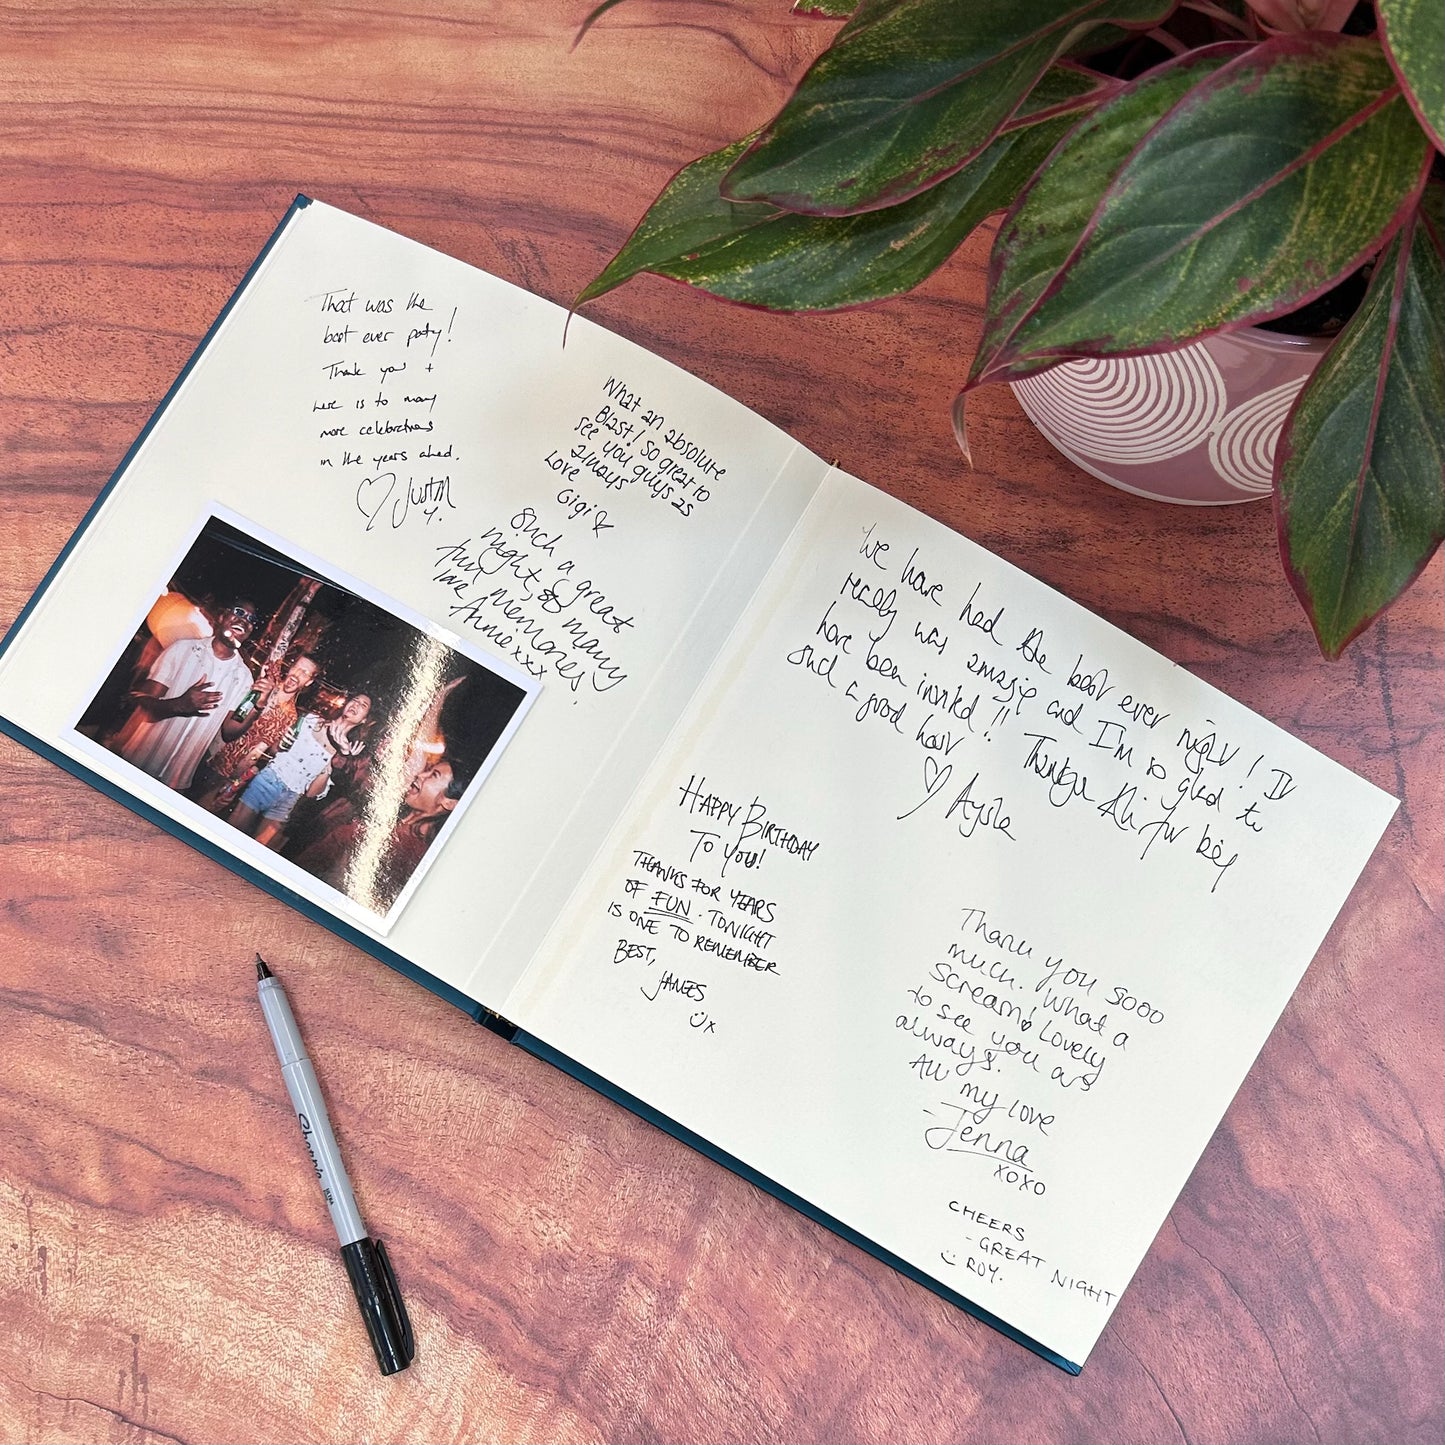 That was the
best ever party!
Thank you +
here is to many
more celebrations
in the years ahead.
Justin
What an absolute
Blast! So great to
see you guys as
always
Love
Gigi
Such a great
night, & so many
fun memories.
love
Annie xxx
We have had the best ever night! It
really was amazing and I'm so glad to
have been invited!! Thankyou Ali for being
such a good host
Ayisla
HAPPY BIRTHDAY
TO YOU!
THANKS FOR YEARS
OF FUN. TONIGHT
IS ONE TO REMEMBER
BEST,
JAMES
x
Thank you sooo
much. What a
scream! Lovely
to see you as
always.
All my love
Jenna
xoxo
CHEERS
- GREAT NIGHT
ROY.
Sharpie
ULTRA